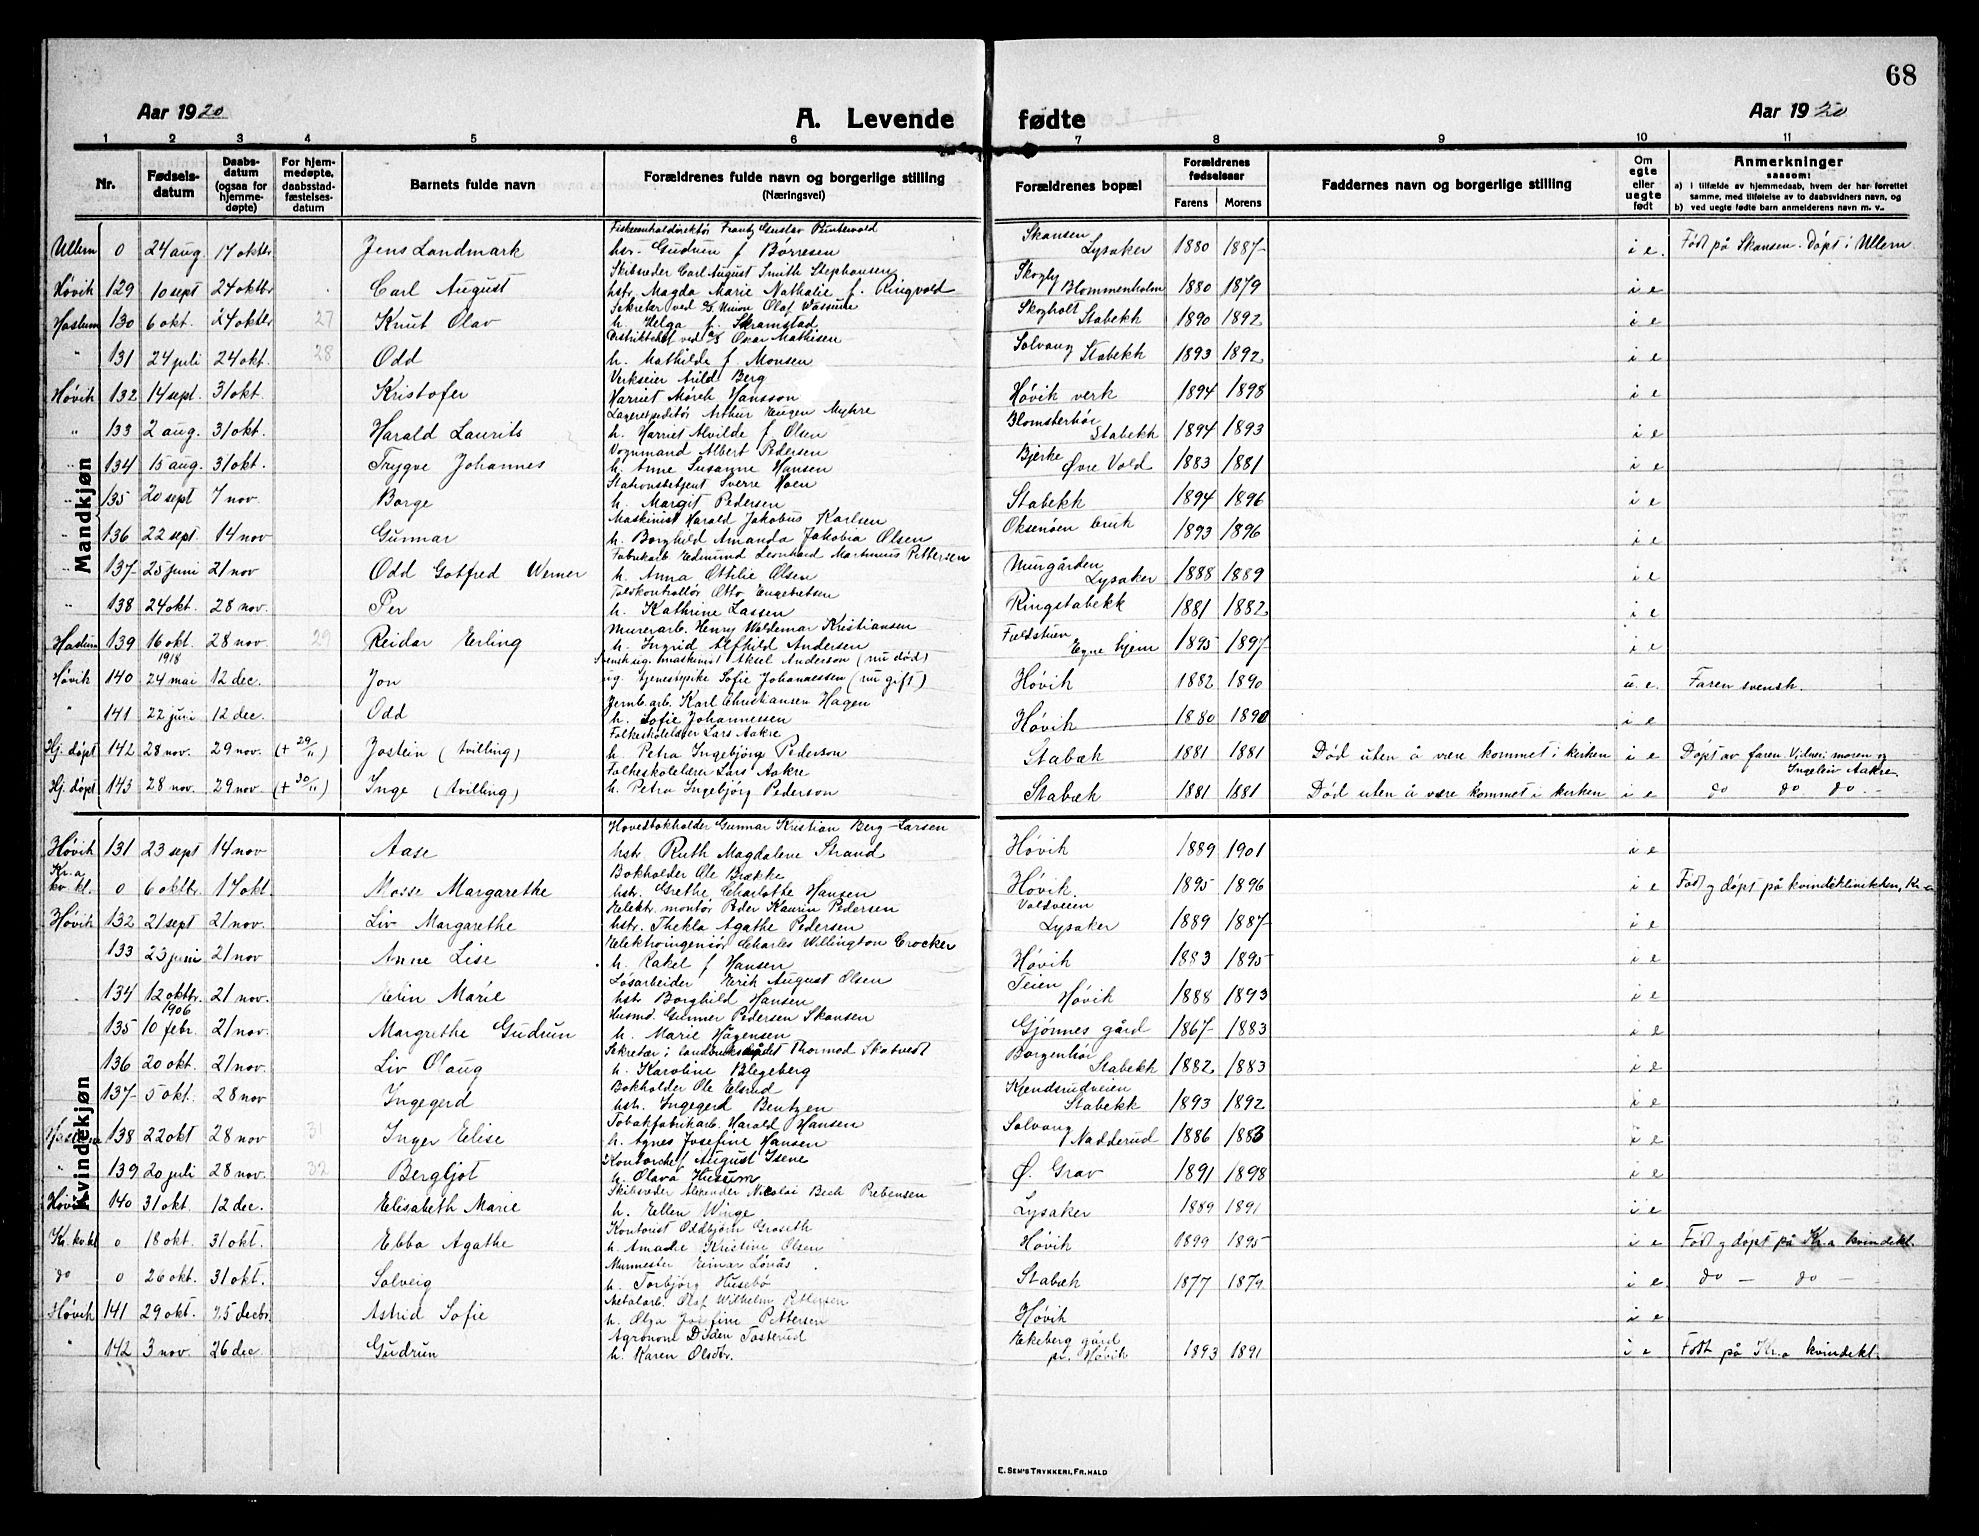 68
Aar 1920 A. Levende fødte Aar 1920
1 2 3 4 5 6 7 8 9 10 11
Nr. Fødselsdatum Daabsdatum (ogsaa for hjemmedøpte) For hjemmedøpte, daabsstadfæstelsesdatum Barnets fulde navn Forældrenes fulde navn og borgerlige stilling (Næringsvei) Forældrenes bopæl Forældrenes fødselsaar Farens Morens Faddernes navn og borgerlige stilling Om egte eller uegte født Anmerkninger saasom: a) i tilfælde av hjemmedaab, hvem der har forrettet samme, med tilføielse av to daabsvidners navn, og b) ved uegte fødte barn anmelderens navn m. v.
Mandkjøn
Ullern 0 24 aug. 17 oktbr Jens Landmark hstr. Gudrun f Børresen Skansen Lysaker 1880 1887 i e. Født på Skansen. Døpt i Ullern
Høvik 129 10 sept 24 oktbr Carl August Skibsreder Carl August Smith Stephansen hstr. Magda Marie Nathalie f. Ringvold Skogly Blommenholm 1880 1879 i e
Haslum 130 6 okt. 24 oktbr 27 Knut Olav h. Helga f. Skramstad Skogholt Stabekk 1890 1892 i e
" 131 24 juli 24 okt. 28 Odd h. Mathilde f Monsen Solvang Stabekk 1893 1892 i e
Høvik 132 14 sept. 31 okt. Kristofer Verkseier Arild Berg Harriet Mørch Hansson Høvik verk 1894 1898 i e
" 133 2 aug. 31 okt. Harald Laurits Lagerekspeditør Arthur Eugen Myhre h. Harriet Alvilde f Olsen Stabekk 1894 1893 i e
" 134 15 aug. 31 okt. Trygve Johannes Vognmand Albert Pedersen h. Anne Susanne Hansen Bjerke Øvre Vold 1883 1881 i e
" 135 20 sept 7 nov. Borge Stationsbetjent Sverre Hoen h. Margit Pedersen Stabekk 1894 1896 i e
" 136 22 sept. 14 nov Gunnar Maskinist Harald Jakobus Karlsen h. Borghild Amanda Jakobia Olsen Oksenøen bruk 1893 1896 i e
" 137 25 juni 21 nov Odd Gotfred Werner Fabrikarb. Edmund Leonhard Martinius Pettersen h. Anna Ottilie Olsen Murgården Lysaker 1888 1889 i e
" 138 24 okt. 28 nov. Per Otto Engebretsen h. Kathrine Lassen Ringstabekk 1881 1882 i e
Haslum 139 16 okt. 28 nov. 29 Reidar Erling Murerarb. Henry Waldemar Kristiansen h. Ingrid Alfhild Andersen Egne hjem 1895 1897 i e
Høvik 140 1918 24 mai 12 dec. Jon Svensk ug. maskinist Aksel Anderson (nu død) ug. tjenestepike Sofie Johannessen (nu gift) Høvik 1882 1890 u. e. Faren svensk.
" 141 22 juni 12 dec. Odd Jernb. arb. Karl Christiansen Hagen h. Sofie Johannessen Høvik 1880 1890 i e
Hj. døpt 142 28 nov. 29 nov. (+ 29/11) Jostein (tvilling) Folkeskolelærer Lars Aakre h. Petra Ingebjørg Pederson Stabæk 1881 1881 Død uten å være kommet i kirken i e Døpt av faren Vidner: moren og Ingeleiv Aakre.
Hj. døpt 143 28 nov. 29 nov (+ 30/11) Inge (tvilling) Folkeskolelærer Lars Aakre h. Petra Ingebjörg Pederson Stabæk 1881 1881 Død uten å være kommet i kirken i e do do do. -
Kvindekjøn
Høvik 131 23 sept 14 nov Aase Hovedbokholder Gunnar Kristian Berg-Larsen hstr. Ruth Magdalene Strand Høvik 1889 1901 i e
Kr.a kv. kl. 0 6 oktbr. 17 okt. Mosse Margarethe Bokholder Ole Brække hstr. Grethe Charlotte Hansen Høvik 1895 1896 i e Født og døpt på kvindeklinikken, Kr.a
Høvik 132 21 sept 21 nov. Liv Margarethe Elektr. montör Peder Kaurin Pedersen hstr. Thekla Agathe Pedersen Voldveien Lysaker 1889 1887 i e
133 23 juni 21 nov Anne Lise Elektroingeniör Charles Willington Crocker h. Rakel f Hansen Høvik 1883 1895 i e
134 12 oktbr. 21 nov. Elin Marie Løsarbeider Erik August Olsen hstr Borghild Hansen Teien Høvik 1888 1893 i e
135 1906 10 febr. 21 nov. Margrethe Gudrun Husmd. Gunner Pedersen Skansen h. Marie Hagensen Gjønnes gård 1867 1883 i e
136 20 okt. 21 nov. Liv Olaug Thormod Skatvedt h. Karoline Blegeberg Stabekk 1882 1883 i e
137 5 okt. 28 nov Ingegerd Bokholder Ole Elsrud hstr. Ingegerd Bentzen Kjendsrudveien Stabekk 1893 1892 i e
Haslum 138 22 okt 28 nov 31 Inger Elise Tobakfabrikarb. Harald Hansen h. Agnes Josefine Hansen Solvang Nadderud 1886 1883 i e
" 139 20 juli 28 nov. 32 Bergljot Kontorchef August Isene h. Olava Husum Ø. Grav 1891 1898 i e
Høvik 140 31 okt. 12 dec. Elisabeth Marie Skibsreder Alexander Nicolai Bech Prebensen h. Ellen Winge Lysaker 1889 1891 i e
Kr. kv. kl 0 18 okt. 31 okt. Ebba Agathe Kontorist Oddbjørn Groseth h. Kristine Olsen Høvik 1899 1895 i e Født og døpt på Kr.a kvindekl.
do 0 26 okt. 31 okt. Solveig Murmester Einar Lönås h. Torbjörg Husebö Stabæk 1877 1879 i e do - do -
Høvik 141 29 okt. 25 decbr Astrid Sofie Metalarb. Olaf Wilhelm Pettersen h. Olga Josefine Pettersen Høvik i e
" 142 3 nov. 26 dec Gudrun Agronom h. Karen Olsdtr. Ekeberg gård pr. Høvik 1893 1891 i e Født på Kr.a kvindekl.
E. SEM'S TRYKKERI, FR.HALD